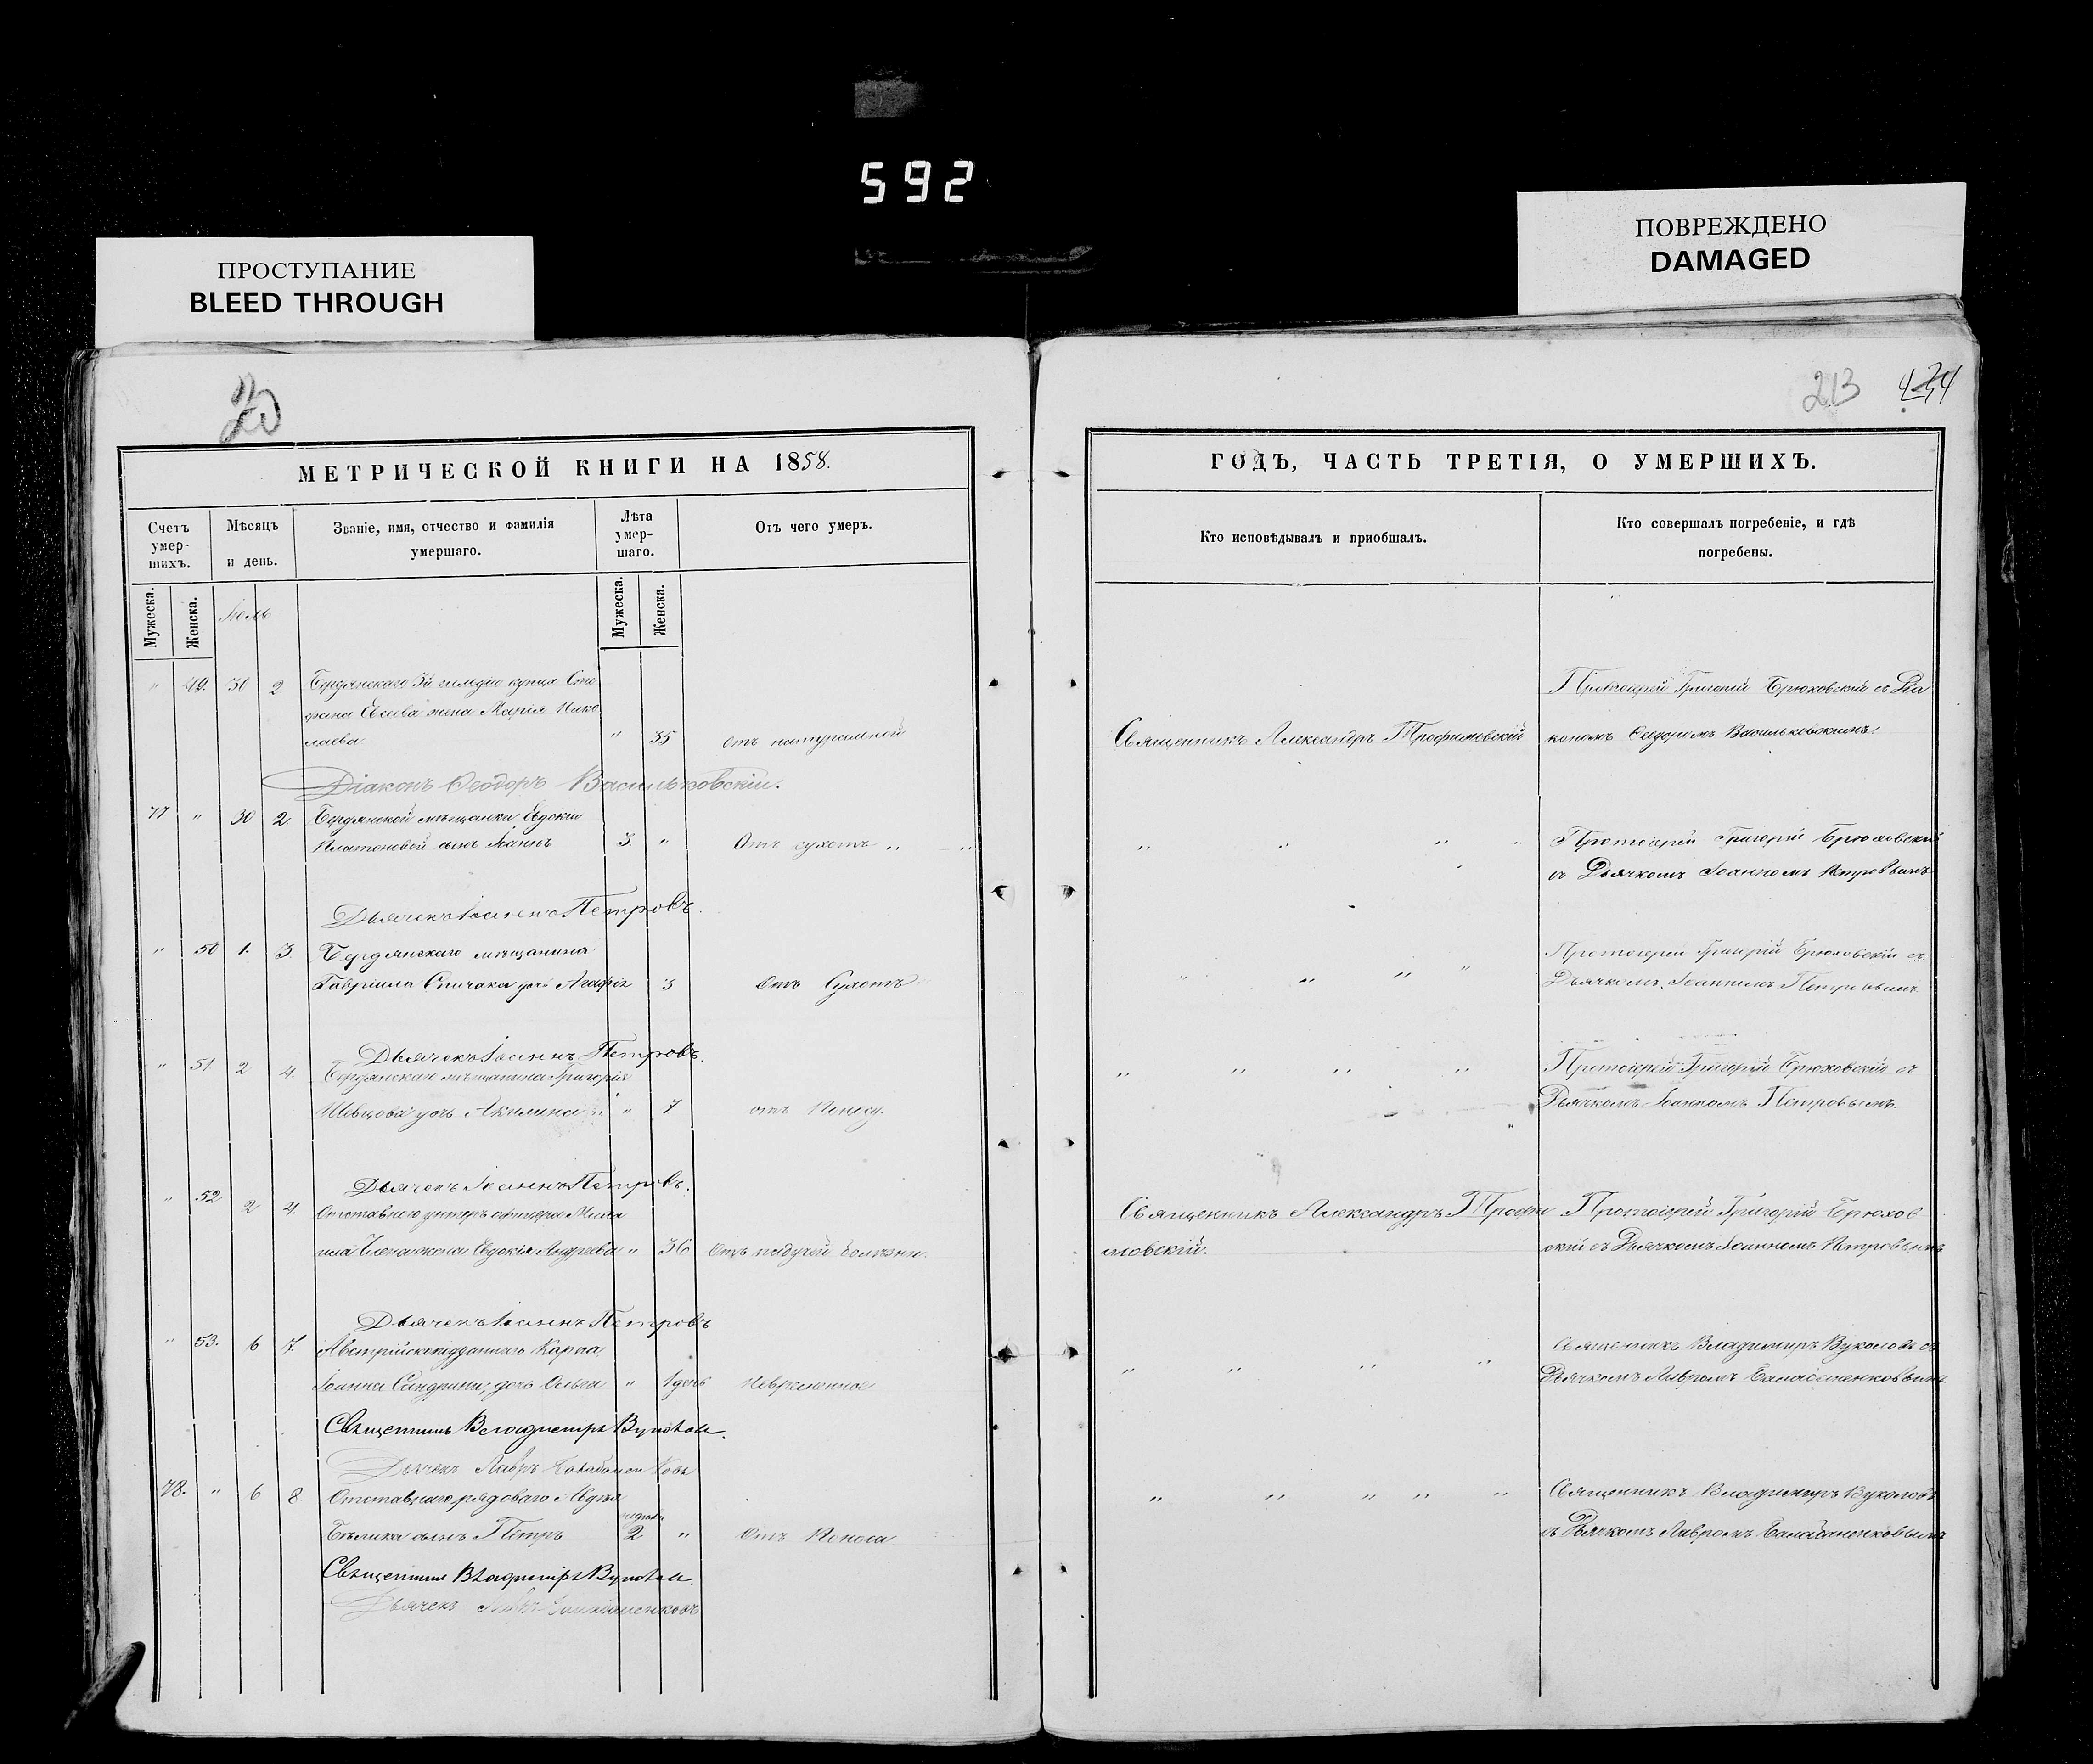 592
ПРОСТУПАНИЕ
BLEED THROUGH
ПОВРЕЖДЕНО
DAMAGED
20
МЕТРИЧЕСКОЙ КНИГИ НА 1858.
Счетъ умер-шихъ.
Мѣсяцъ и день.
Званіе, имя, отчество и фамилія умершаго.
Лѣта умер-шаго.
Отъ чего умеръ.
Мужеска.
Женска.
Мужеска.
Женска.
" 49. 30 2 Бердянскаго 3й гильдіи купца Сте
жена Марія Нико
лаева " 35 отъ натуральной
Діаконъ Ѳеодоръ Васильковскій.
77 " 30 2 Бердянской мѣщанки Евдокіи
Платоновой сынъ Іоаннъ 3. " Отъ сухотъ
Дьячекъ Іоаннъ Петровъ.
" 50 1. 3. Бердянскаго мѣщанина
Гавріила Спичака дочь 3 Отъ Сухотъ
Дьячекъ Іоаннъ Петровъ.
" 51 2 4. Бердянскаго мѣщанина Григорія
Шевцова дочь Акилина " 7 отъ
Дьячекъ Іоаннъ Петровъ.
" 52 2 4. Отставнаго унтеръ офицера Миха
жена Евдокія Андреева " 36 Отъ падучей болѣзни.
Дьячекъ Іоаннъ Петровъ
" 53. 6 7. Австрійскоподданнаго Карла
дочь Ольга " 1 день
Священникъ Владиміръ Вуколовъ.
Дьячекъ Лавръ
78. " 6 8 Отставнаго рядоваго
Бѣлика сынъ Петръ 2 " Отъ Поноса
Священникъ Владиміръ Вуколовъ.
Дьячекъ
213 434
ГОДЪ, ЧАСТЬ ТРЕТІЯ, О УМЕРШИХЪ.
Кто исповѣдывалъ и пріобщалъ.
Кто совершалъ погребеніе, и гдѣ погребены.
Протоіерей Григорій Брюховскій съ Діа
Священникъ Александръ Трофимовскій кономъ Ѳедоромъ Васильковскимъ.
" " " " Протоіерей Григорій Брюховскій
съ Дьячкомъ Іоанномъ Петровымъ
Протоіерей Григорій Брюховскій съ
" " " " Дьячкомъ Іоанномъ Петровымъ
" " " " Протоіерей Григорій Брюховскій съ
Дьячкомъ Іоанномъ Петровымъ.
Священникъ Александръ Трофи Протоіерей Григорій Брюхов
мовскій. скій съ Дьячкомъ Іоанномъ Петровымъ
Священникъ Владиміръ Вуколовъ съ
" " " " Дьячкомъ Лавромъ
" " " " " Священникъ Владиміръ Вуколовъ
съ Дьячкомъ Лавромъ